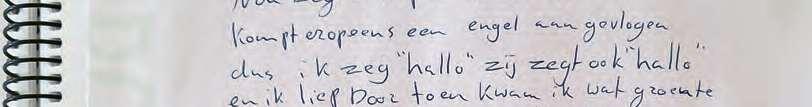 kompt eropeens een engel aan gevlogen
dus ik zeg "hallo" zij zegt ook "hallo"
en ik liep Door toen kwam ik wat groente